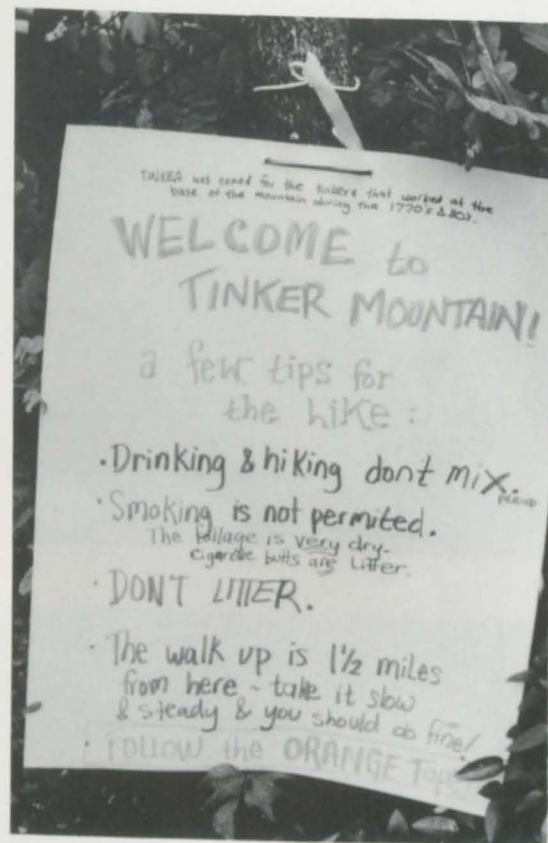 TINKER was named for the tinkers that worked at the
base of the mountain during the 1770's & 80's.
WELCOME to
TINKER MOUNTAIN!
a few tips for
the hike:
• Drinking & hiking dont mix.
PERIOD
• Smoking is not permited.
The foliage is very dry.
Cigarette butts are Litter.
• DON'T LITTER.
• The walk up is 1½ miles
from here - take it slow
& steady & you should do fine!
• FOLLOW the ORANGE Tape